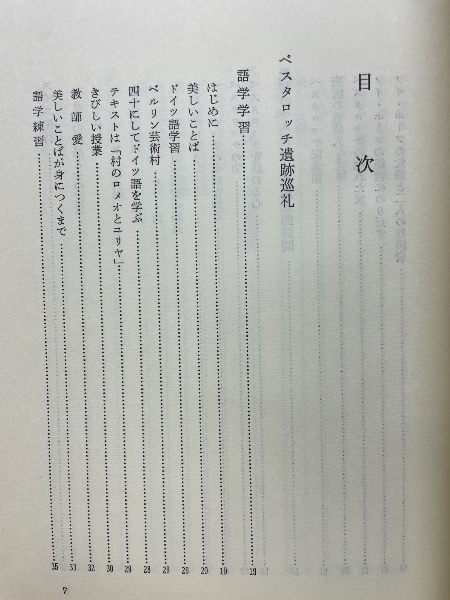 目次
ペスタロッチ遺跡巡礼
語学学習 19
はじめに 19
美しいことば 20
ドイツ語学習 26
ベルリン芸術村 28
四十にしてドイツ語を学ぶ 29
テキストは「村のロメオとユリヤ」 30
きびしい授業 32
教師愛 33
美しいことばが身につくまで 35
語学練習
7